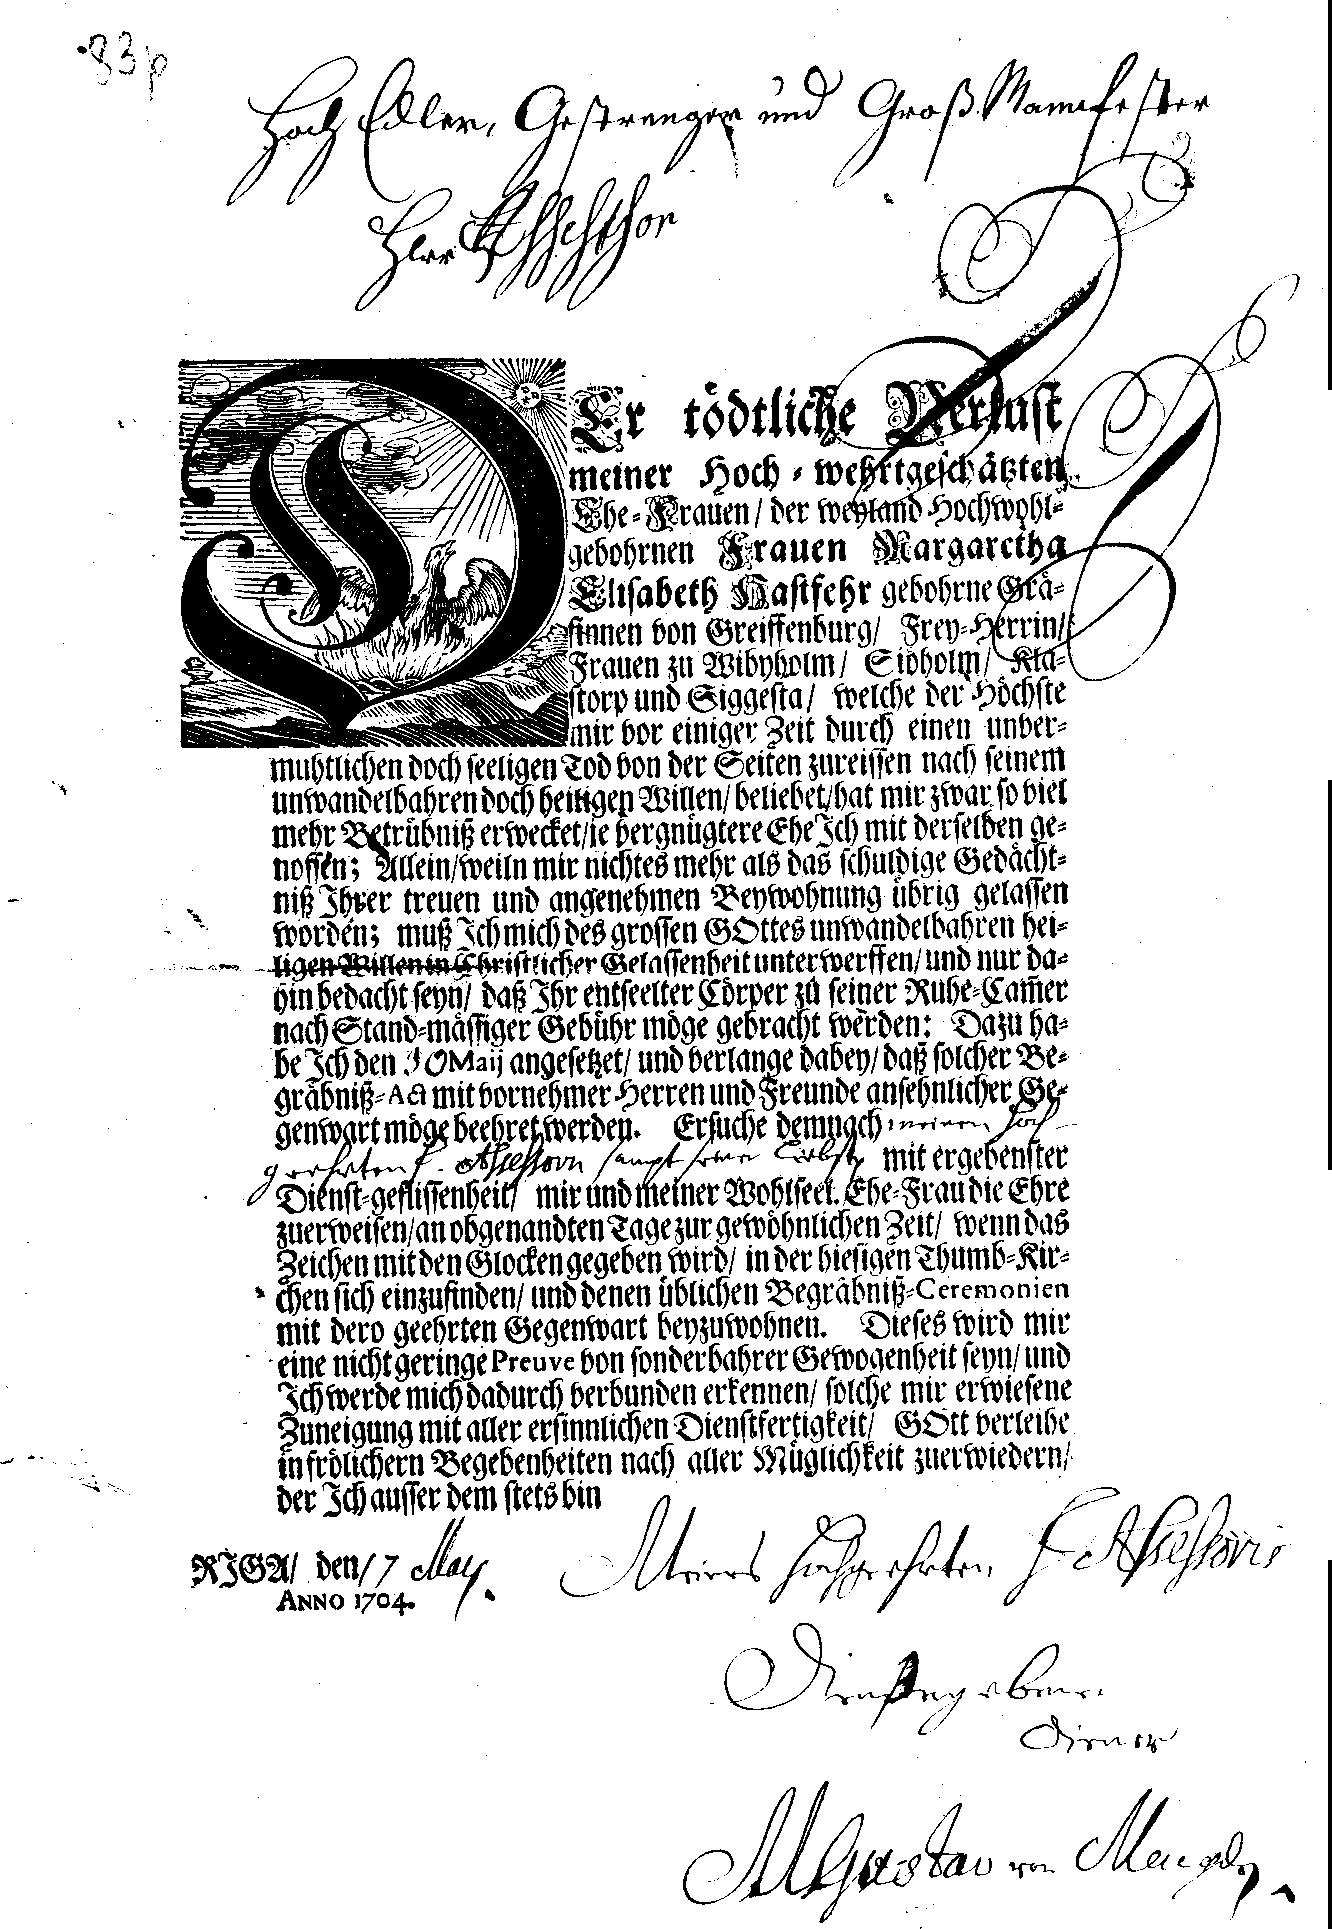 83p
Hoch Edler, Gestrenger und Groß Mannfester
Herr Assessor
DEr tödtliche Verlust
meiner Hoch-wehrtgeschätzten
Ehe-Frauen/ der weyland Hochwohl-
gebohrnen Frauen Margaretha
Elisabeth Hastfehr gebohrne Grä-
finnen von Greiffenburg/ Frey-Herrin/
Frauen zu Wibyholm/ Sioholm/ Kla-
storp und Siggesta/ welche der Höchste
mir vor einiger Zeit durch einen unver-
muhtlichen doch seeligen Tod von der Seiten zureissen nach seinem
unwandelbahren doch heiligen Willen/ beliebet/ hat mir zwar so viel
mehr Betrübniß erwecket/ je vergnügtere Ehe Ich mit derselben ge-
nossen; Allein/ weiln mir nichtes mehr als das schuldige Gedächt-
niß Ihrer treuen und angenehmen Beywohnung übrig gelassen
worden; muß Ich mich des grossen GOttes unwandelbahren hei-
ligen Willen in Christlicher Gelassenheit unterwerffen/ und nur da-
hin bedacht seyn/ daß Ihr entseelter Cörper zu seiner Ruhe-Cam̃er
nach Stand-mässiger Gebühr möge gebracht werden: Dazu ha-
be Ich den 10 Maij angesetzet/ und verlange dabey/ daß solcher Be-
gräbniß-Act mit vornehmer Herren und Freunde ansehnlicher Ge-
genwart möge beehret werden. Ersuche demnach meinen Hoch-
geehrten H. Assessorn sampt seiner Liebste mit ergebenster
Dienst-geflissenheit/ mir und meiner Wohlseel. Ehe-Frau die Ehre
zuerweisen/ an obgenandten Tage zur gewöhnlichen Zeit/ wenn das
Zeichen mit den Glocken gegeben wird/ in der hiesigen Thumb-Kir-
chen sich einzufinden/ und denen üblichen Begräbniß-Ceremonien
mit dero geehrten Gegenwart beyzuwohnen. Dieses wird mir
eine nicht geringe Preuve von sonderbahrer Gewogenheit seyn/ und
Ich werde mich dadurch verbunden erkennen/ solche mir erwiesene
Zuneigung mit aller ersinnlichen Dienstfertigkeit/ GOtt verleihe
in frölichern Begebenheiten nach aller Müglichkeit zuerwiedern/
der Ich ausser dem stets bin
RIGA/ den/ 7 May.
ANNO 1704.
Meines Hochgeehrten H. Assessoris
Dienstergebener
Diener
M Gustav von Mengden